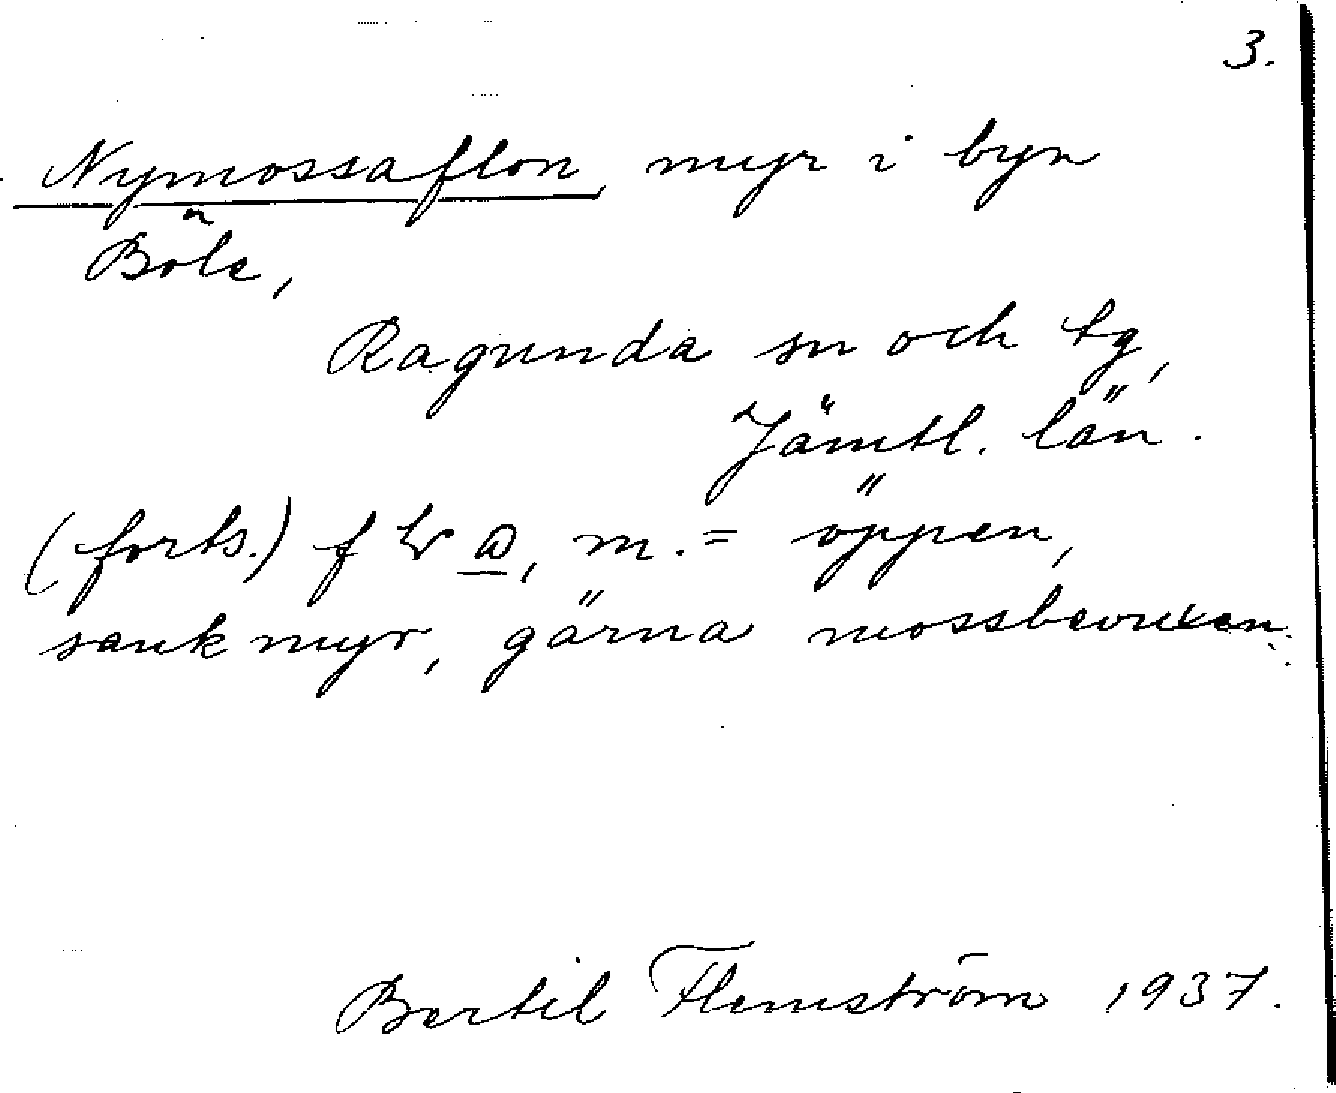 3.
Nymossaflon, myr i byn
Böle,
Ragunda sn och tg,
Jämtl. län.
(forts.) f m. = öppen,
sank myr, gärna mossbevuxen.
Bertil Flemström 1937.